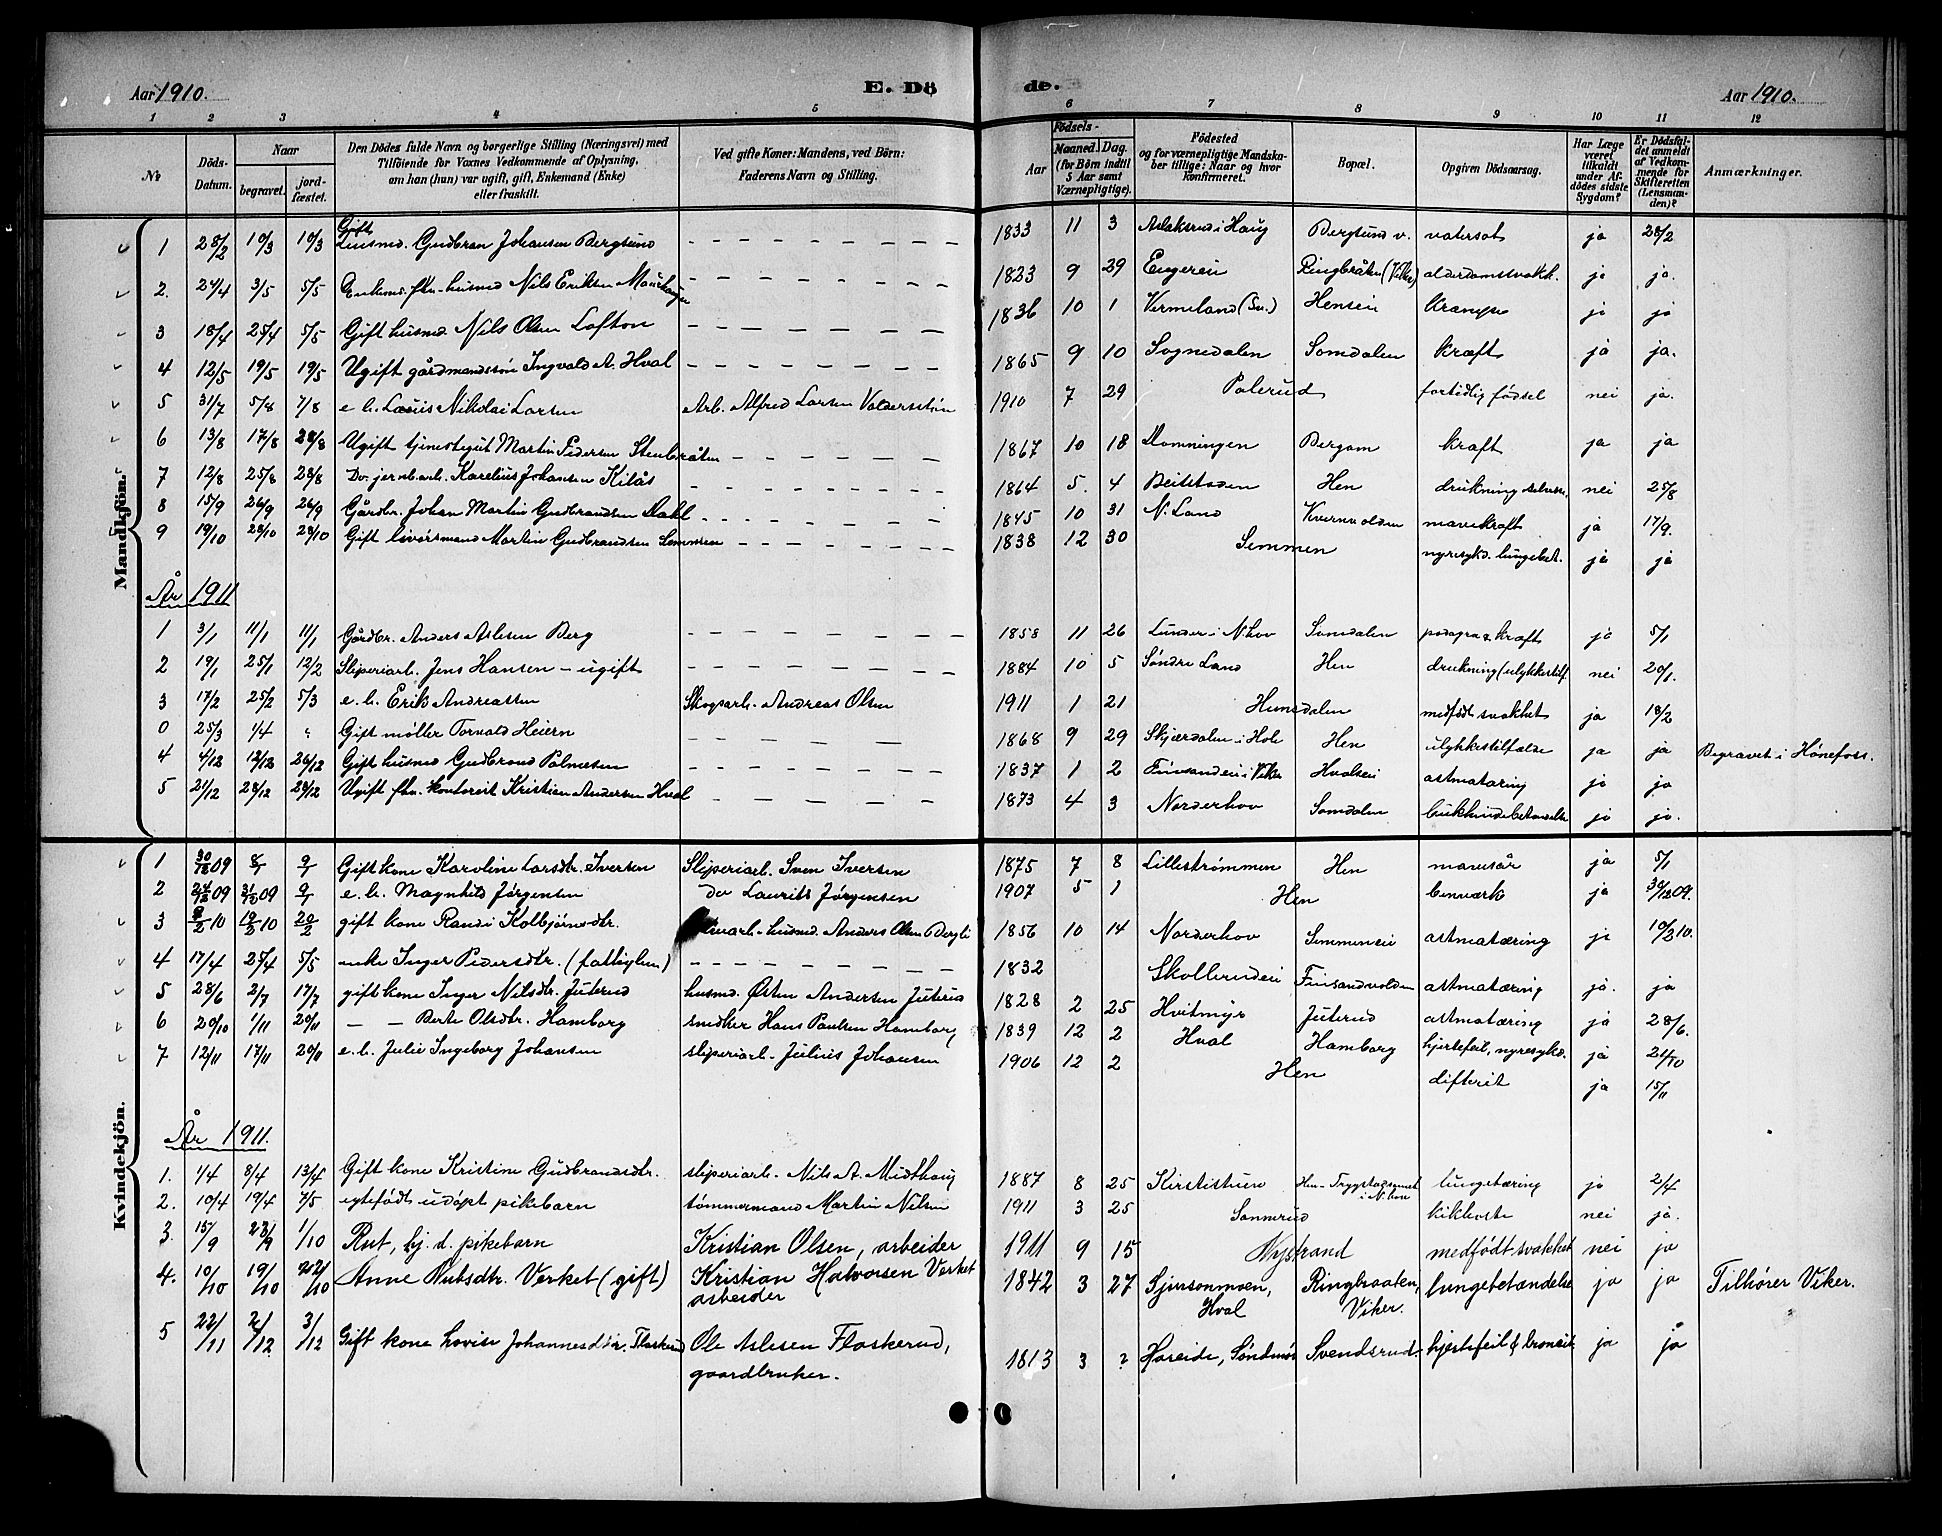 Aar 1910. E. Dö de. Aar 1910.
1 2 3 4 5 6 7 8 9 10 11 12
№ Döds-Datum. Naar begravet. jord-fæstet. Den Dödes fulde Navn og borgerlige Stilling (Næringsvei) med Tilföiende for Voxnes Vedkommende af Oplysning, om han (hun) var ugift, gift, Enkemand (Enke) eller fraskilt. Ved gifte Koner: Mandens, ved Börn: Faderens Navn og Stilling. Födsels- Aar Maaned. Dag. (for Börn indtil 5 Aar samt Værnepligtige). Födested og for værnepligtige Mandskaber tillige: Naar og hvor konfirmeret. Bopæl. Opgiven Dödsaarsag. Har Læge været tilkaldt under Afdödes sidste Sygdom? Er Dödsfaldet anmeldt af Vedkommende for Skifteretten (Lensmanden)? Anmærkninger.
Mandkjön.
1 28/2 10/3 10/3 Gift Husmd. Gudbran Johansen Bergsund 1833 11 3 Aslaksrud i Haug Bergsund v. vatersot ja 28/2
2. 24/4 3/5 5/5 Enkem. fhv. husmd Nils Eriksen 1823 9 29 Engereie Ringbråten (Viker) alderdomssvakh. ja ja.
3 18/4 25/4 5/5 Gift husmd. Nils Olsen Lofton 1836 10 1 Vermeland (Sv.) Henseie krampe ja ja
4 12/5 19/5 19/5 Ugift gårdmandssøn Ingvald A. Hval 1865 9 10 Sognedalen Somdalen kræft ja ja.
5 31/7 5/8 7/8 e. b. Laurits Nikolai Larsen Arb. Alfred Larsen 1910 7 29 Palerud fortidlig fødsel nei ja.
6 13/8 17/8 28/8 Ugift tjenestegut Martin Pedersen Stenbråten 1867 10 18 Bergom kræft ja ja
7 12/8 25/8 28/8 Do. jernb.arb. Karelius Johansen Kilås 1864 5. 4 Beitstaden Hen drukning nei 25/8
8 15/9 26/9 26/9 Gårdbr. Johan Martin Gudbrandsen Dahl 1845 10 31 N. Land Kvernvolden mavekræft ja 17/9.
9 19/10 28/10 28/10 Gift livørsmand Martin Gudbrandsen Semmen 1838 12 30 Semmen nyresykd. lungebet. ja ja
År 1911
1 3/1 11/1 11/1 Gårdbr. Anders Aslesen Berg 1858 11 26 Lunder i N.hov Somdalen podagra & kræft ja 5/1
2 19/1 25/1 12/2 Sliperiarb. Jens Hansen – ugift 1884 10 5 Søndre Land Hen drukning (ulykkestilf. nei 20/1.
3 17/2 25/2 5/3 e. b. Erik Andreassen Skogsarb. Andreas Olsen 1911 1 21 Hunsdalen medfødt svakhet ja 18/2
0 25/3 1/4 " Gift møller Torvald Heiern 1868 9 29 Skjærdalen i Hole Hen ulykkestilfælde ja ja Begravet i Hønefoss.
4 4/12 12/12 26/12 Gift husmd Gudbrand Palmesen 1837 1 2 Finsandeie i Viker Hvalseie astmatæring ja ja
5 21/12 28/12 28/12 Ugift fhv. kontorist Kristian Andersen Hval 1873 4 3 Norderhov Somdalen bukhindebetændelse ja ja.
Kvindekjön.
1 30/12 09 8/1 9/1 Gift kone Karoline Larsdtr. Iversen Sliperiarb. Sven Iversen 1875 7 8 Lillestrømmen Hen mavesår ja 5/1
2 24/12 09 31/12 09 9/1 e. b. Magnhild Jørgensen do Laurits Jørgensen 1907 5 1 Hen benværk ja 30/12 09.
3 8/2 10 19/2 10 20/2 gift kone Randi Kolbjørnsdtr. husmd. Anders Olsen Bergli 1856 10 14 Norderhov Semmeneie astmatæring ja 10/2 10.
4 17/4 25/4 5/5 enke Inger Pedersdtr. (fattiglem) 1832 Skollerudeie Finsandvolden astmatæring ja. ja
5 28/6 2/7 17/7 gift kone Inger Nilsdtr. Juterud husmd. Østen Andersen Juterud 1828 2 25 Hvitmyr Juterud astmatæring ja 28/6.
6 20/10 1/11 20/11 — — Berte Olsdtr. Hamborg snedker Hans Paulsen Hamborg, 1839 12 2 Hval Hamborg hjertefeil, nyresykd. ja 21/10
7 12/11 17/11 20/11 e. b. Julie Ingeborg Johansen sliperiarb. Julius Johansen 1906 12 2 Hen difterit ja 15/11
År 1911.
1. 1/4 8/4 13/4 Gift kone Kristine Gudbrandsdtr. sliperiarb. Nils A. Midthaug 1887 8 25 Kirstistuen Hen i N.hov lungetæring ja 2/4
2. 10/4 19/4 7/5 egtefødt udøpt pikebarn tømmermand Martin Nilsen 1911 3 25 Sonnerud kikhoste nei ja.
3. 15/9 23/9 1/10 Rut, hj. d. pikebarn Kristian Olsen, arbeider 1911 9 15 Nystrand medfødt svakhet nei ja
4. 10/10 19/10 22/10 Anne Nubsdtr. Verket (gift) Kristian Halvorsen Verket arbeider 1842 3 27 Sjursonmoen, Hval Ringbraaten, Viker. lungebetændelse ja ja Tilhører Viker.
5 22/11 2/12 3/12 Gift kone Lovise Johannesdtr. Flaskerud Ole Aslesen Flaskerud, gaardbruker. 1813 3 ? Hareide, Søndmør Svendsrud. hjertefeil & bronkit ja ja